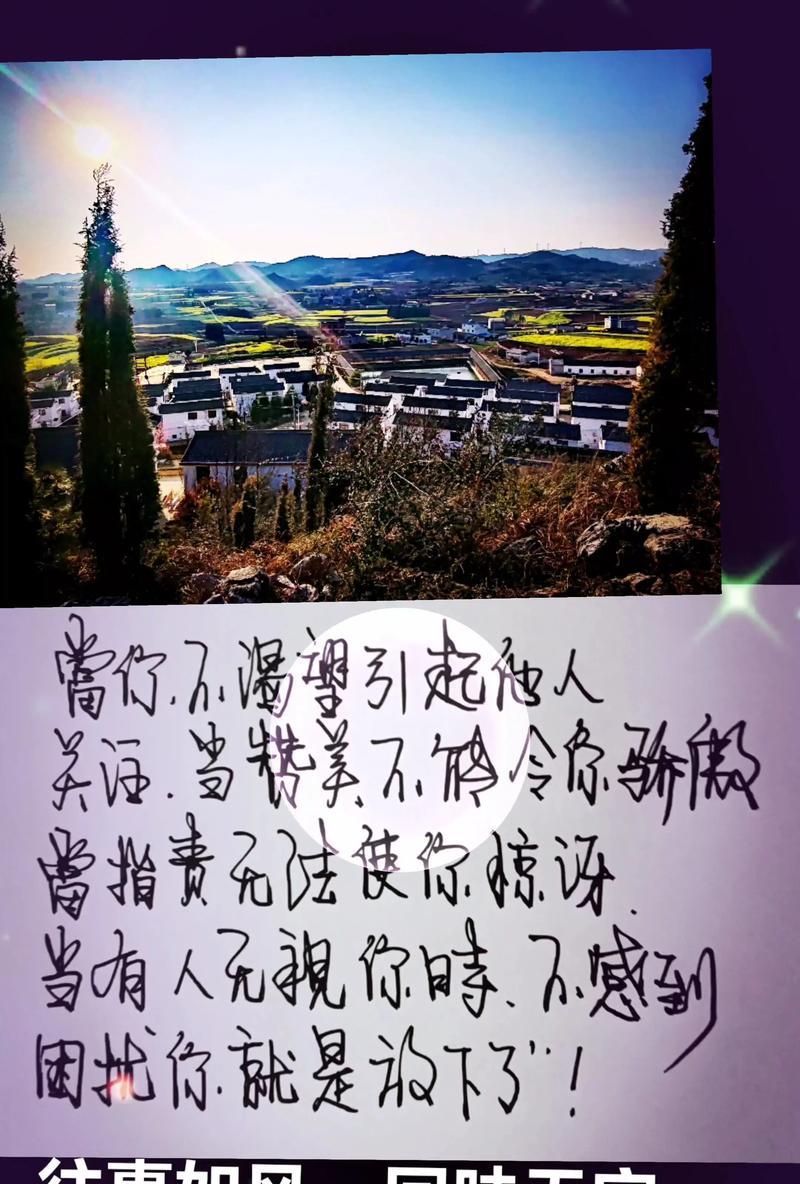 當你.不渴望引起他人
关注.当赞美.不.能令你骄傲
當指责无法使你惊讶.
当有人无視你時、不感到
困扰你.就是放下了"！
往事如风 回味无穷